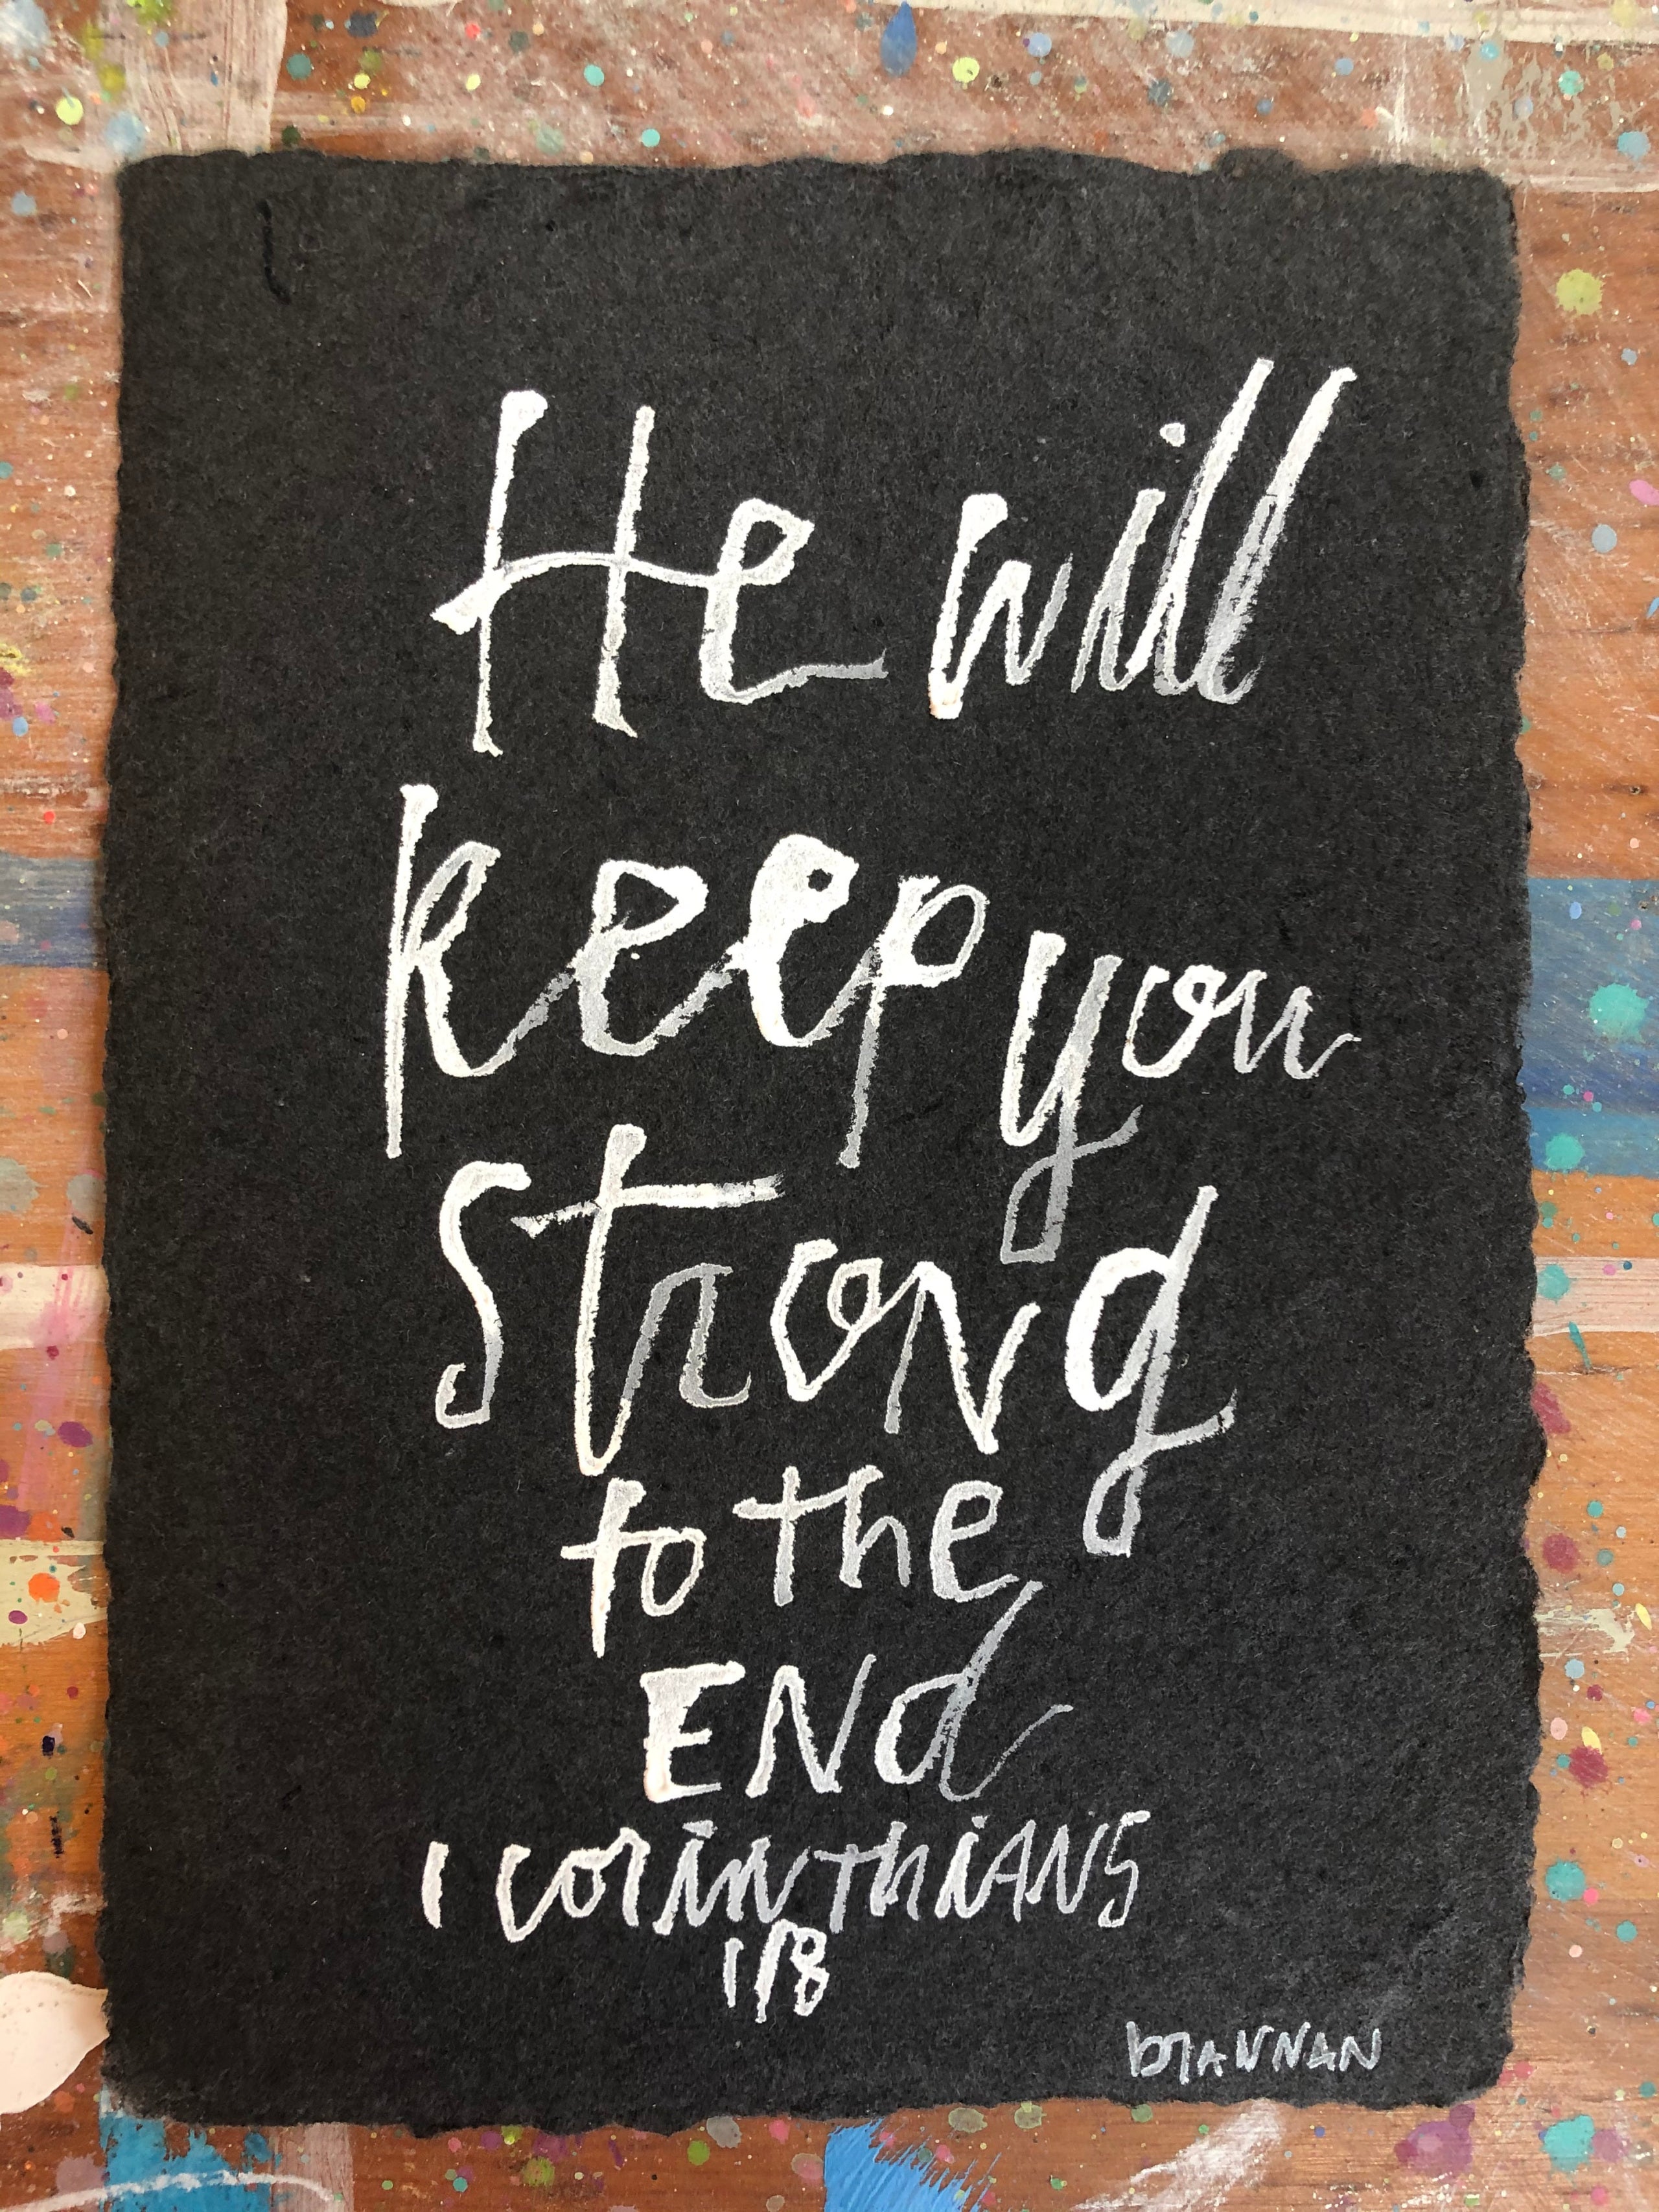 He will
keep you
strong
to the
ENd
1 CORiNThiANS
1/8
bRANNAN